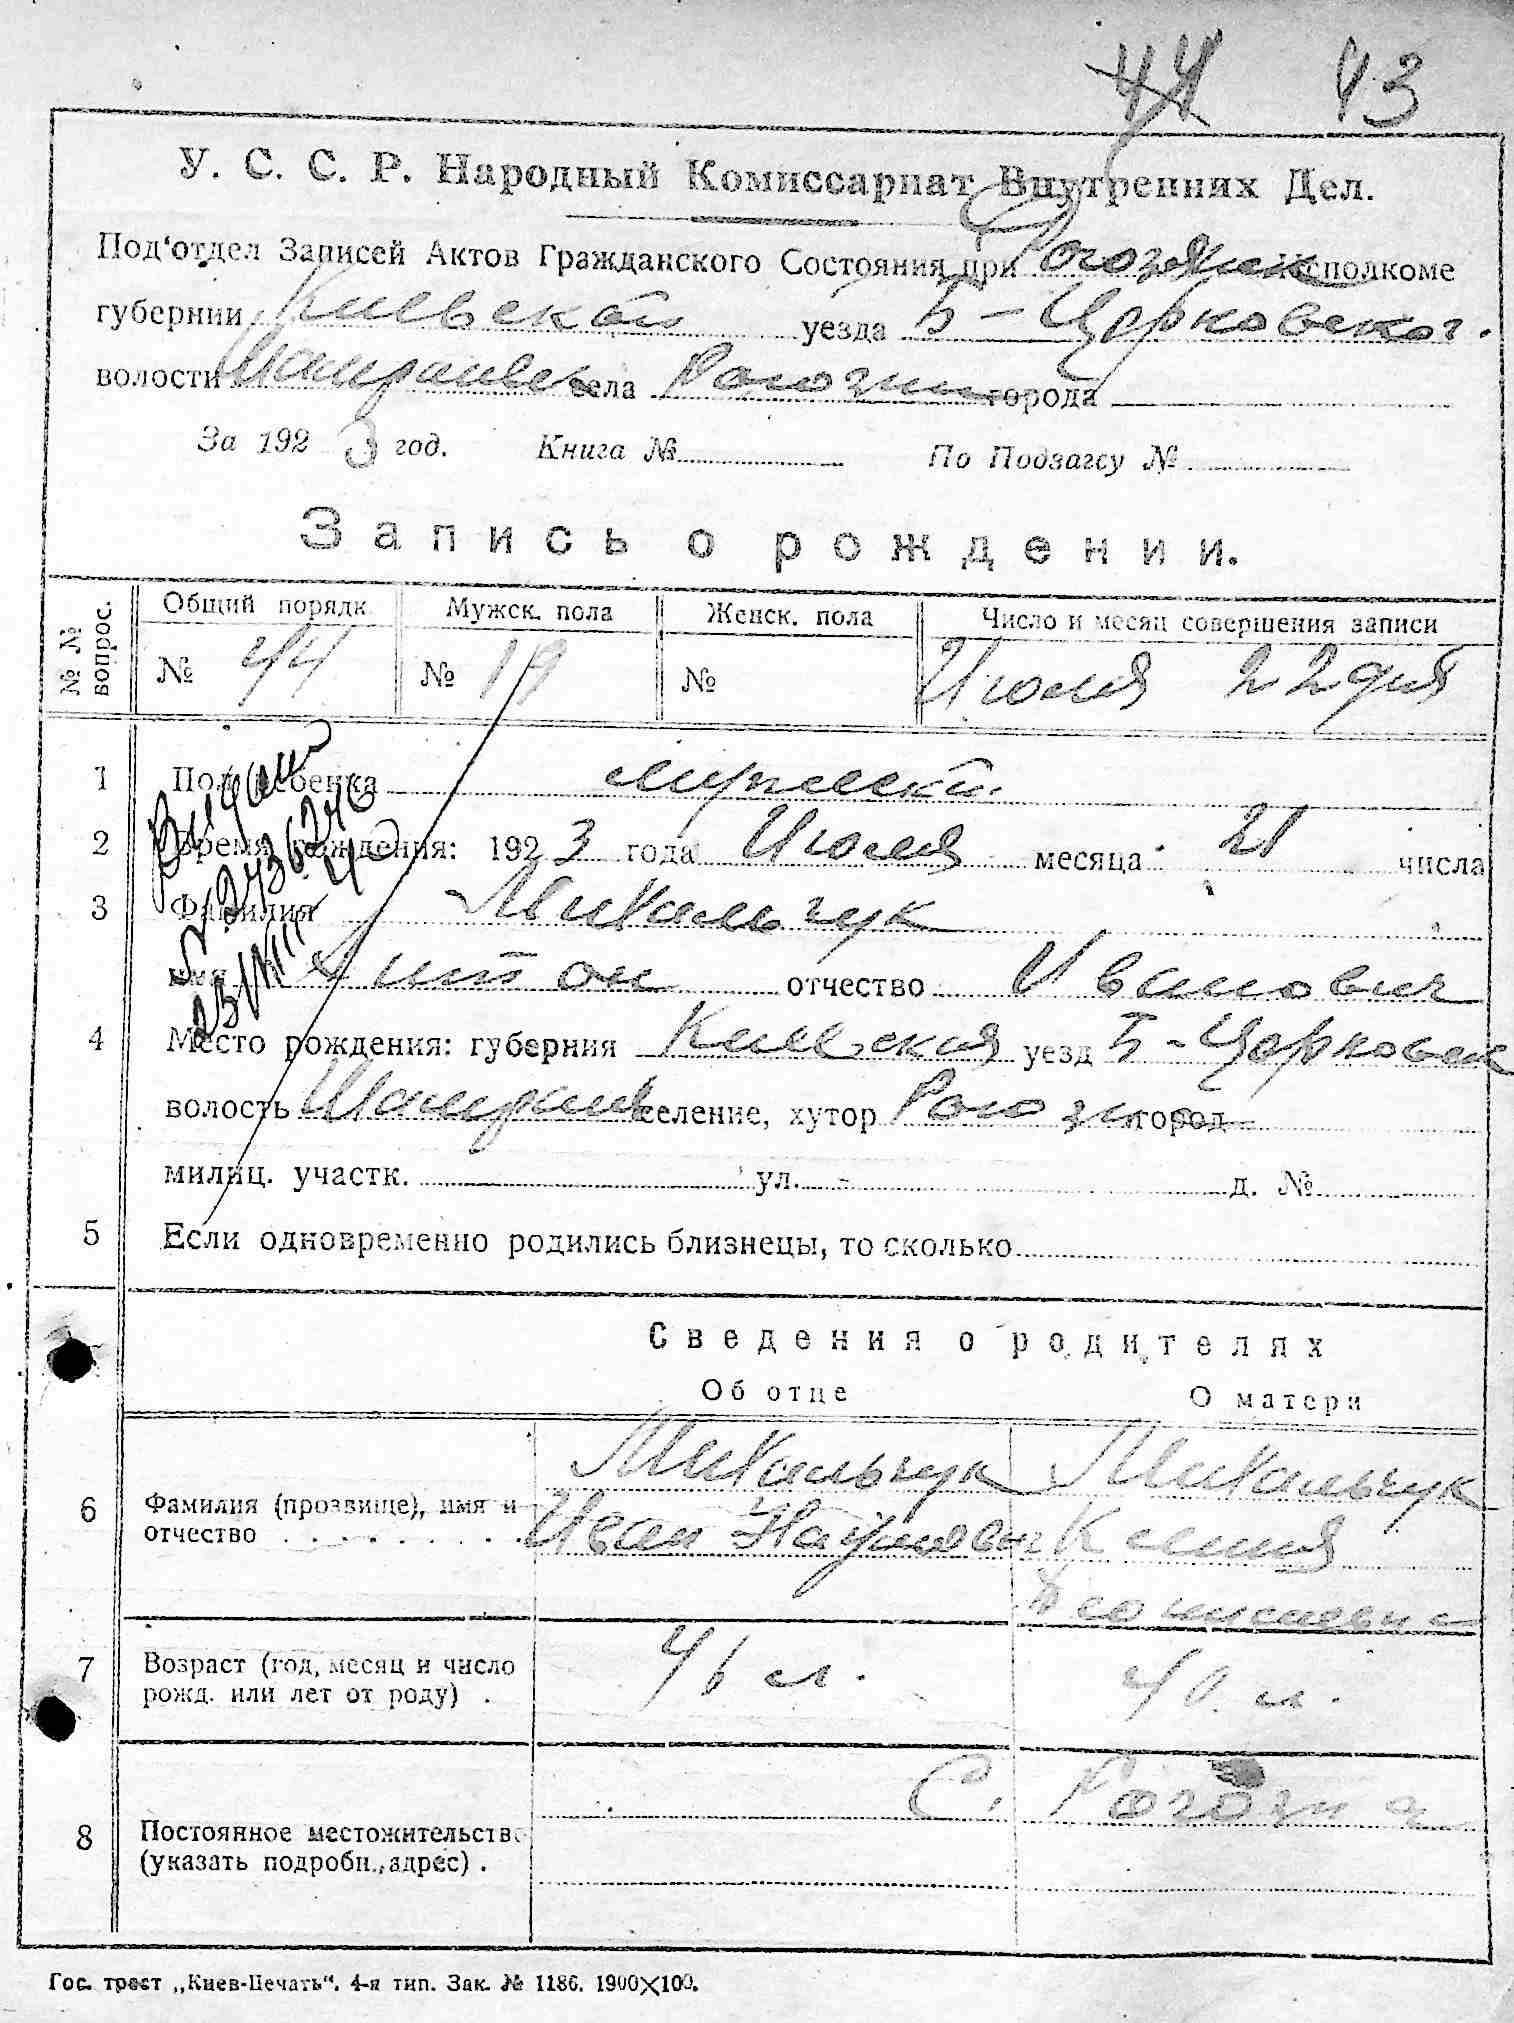 44 43
У. С. С. Р. Народный Комиссариат Внутренних Дел.
Под‘отдел Записей Актов Гражданского Состояния при Рогозянск Исполкоме
губернии Киевской уезда Б-Церковског.
волости села Рогозни города
За 1923 год. Книга № По Подзагсу №
Запись о рождении.
№ № вопрос.
Общий порядк. Мужск. пола Женск. пола Число и месяц совершения записи
№ 44 № 19 № Июля 22 дня
1 Пол ребенка мужской.
2 Время рождения: 1923 года Июля месяца 21 числа
3 Фамилия Михальчук
имя Антон отчество Иванович
4 Место рождения: губерния Киевския уезд Б-Церковск
волость селение, хутор город
милиц. участк. ул. - д. №
5 Если одновременно родились близнецы, то сколько
Сведения о родителях
Об отце О матери
Михальчук Михальчук
6 Фамилия (прозвище), имя и
отчество Иван Наумович Ксения
7 Возраст (год, месяц и число
рожд. или лет от роду) . 46 л. 40. л.
С. Рогозна
8 Постоянное местожительство
(указать подробн. адрес) .
Гос. трест „Киев-Печать“. 4-я тип. Зак. № 1186. 1900×100.